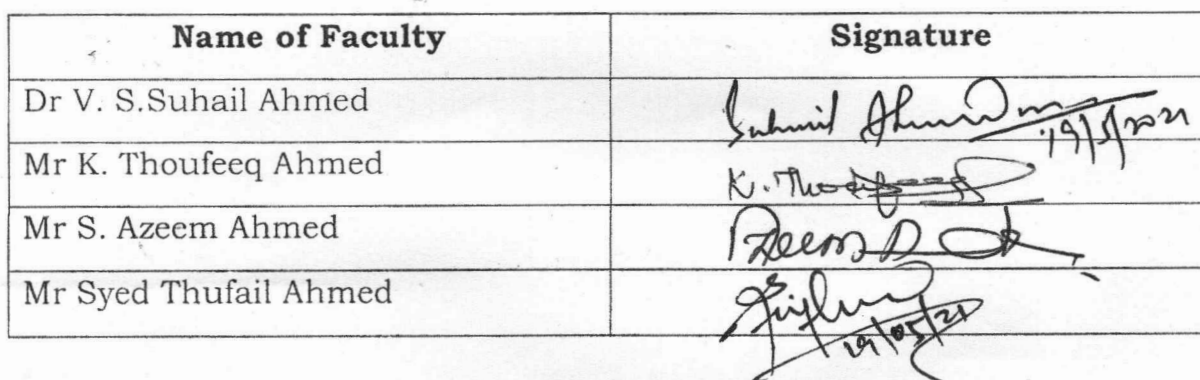 Name of Faculty Signature
Dr V. S.Suhail Ahmed Suhail Ahmed 19/5/2021
Mr K. Thoufeeq Ahmed K. Thoufeeq
Mr S. Azeem Ahmed Azeem
Mr Syed Thufail Ahmed 19/05/21